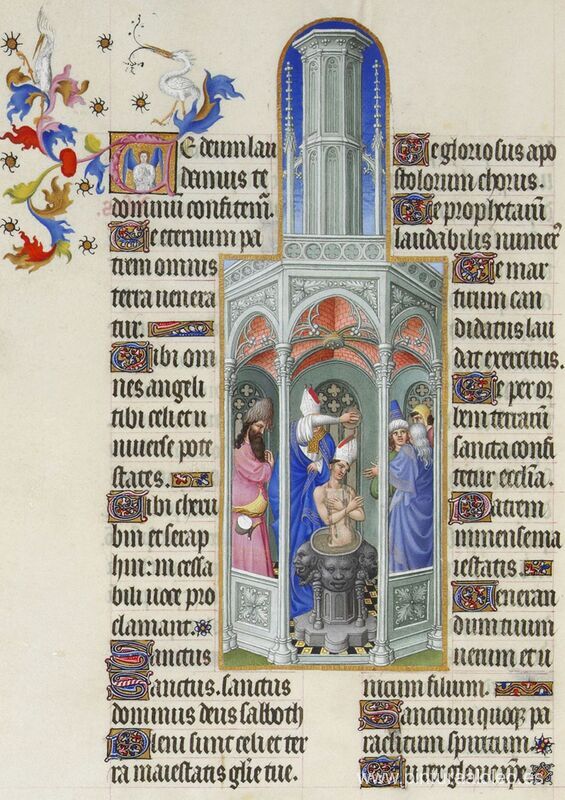 Te deum lau
damus te
dominū confitem̄.
Te eternum pa
trem omnis
terra uenera
tur.
Tibi om
nes angeli
tibi celi et u
niuerse pote
states.
Tibi cheru
bin et serap
hin: incessa
bili uoce pro
clamant.
Sanctus
Sanctus. sanctus
dominus deus sabboth
Pleni sunt celi et ter
ra maiestatis glīe tue.
Te gloriosus apo
stolorum chorus.
Te prophetarū
laudabilis numer⁹
Te mar
tirum can
didatus lau
dat exercitus.
Te per or
bem terrarū
sancta confi
tetur ecclīa.
Patrem
inmense ma
iestatis.
Veneran
dum tuum
uerum et u
nicum filium.
Sanctum quoqꝫ pa
raclitum spiritum.
Tu rex glorie xp̄e.